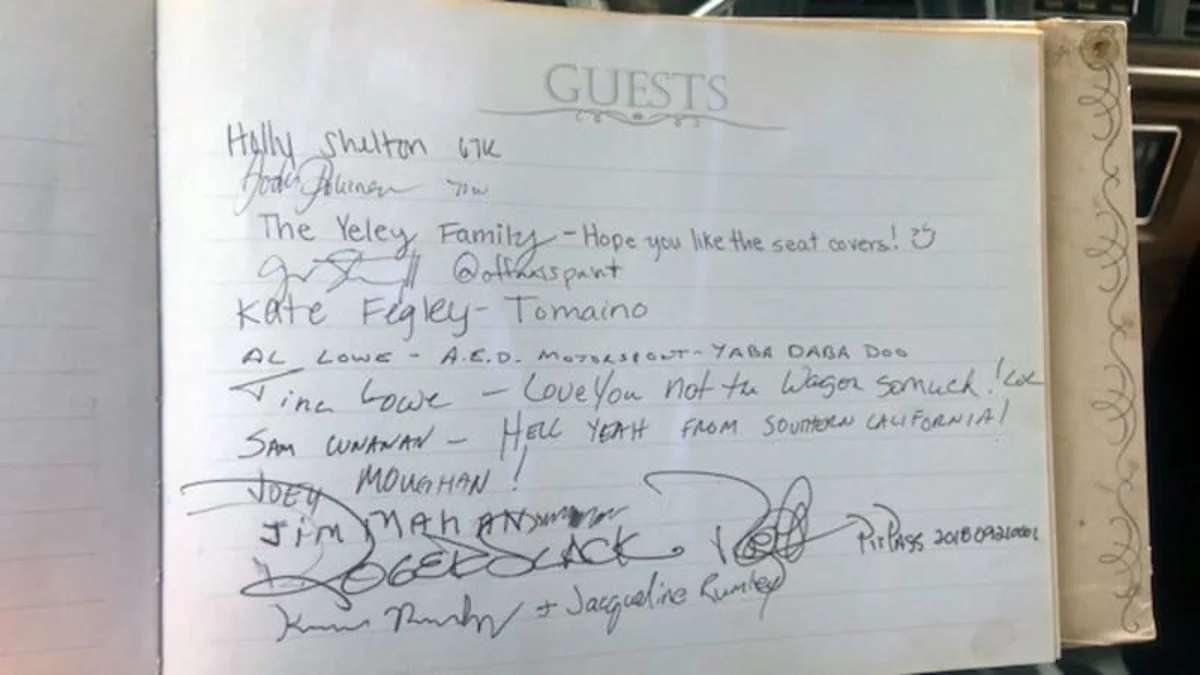 GUESTS
Holly Shelton 67K
The Yeley Family - Hope you like the seat covers!
Kate Fegley - Tomaino
AL LOWE - A.E.D. MOTORSPORT - YABA DABA DOO
Tina Lowe - Love You not the Wagon so much! LOL
SAM CUNANAN - HELL YEAH FROM SOUTHERN CALIFORNIA!
JOEY MOUGHAN!
JIM MAHAN
PITPASS 201809210001
+ Jacqueline Rumley